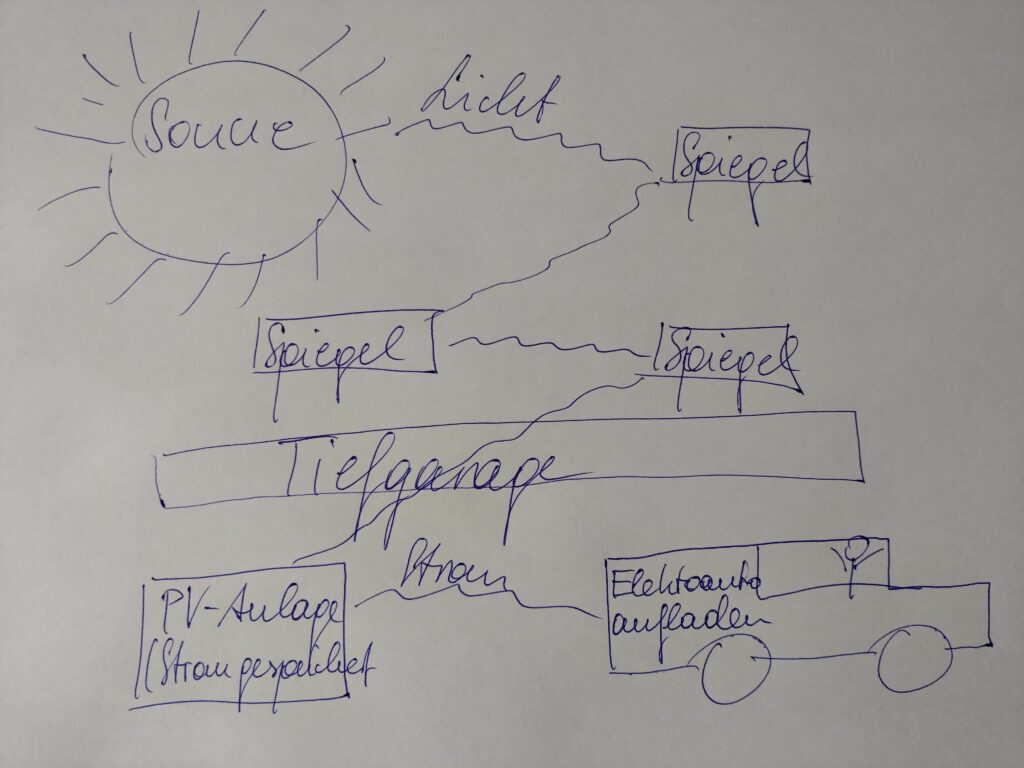 Sonne
Licht
Spiegel
Spiegel
Spiegel
Tiefgarage
Strom
PV-Anlage
(Strom gespeichert
Elektoauto
aufladen